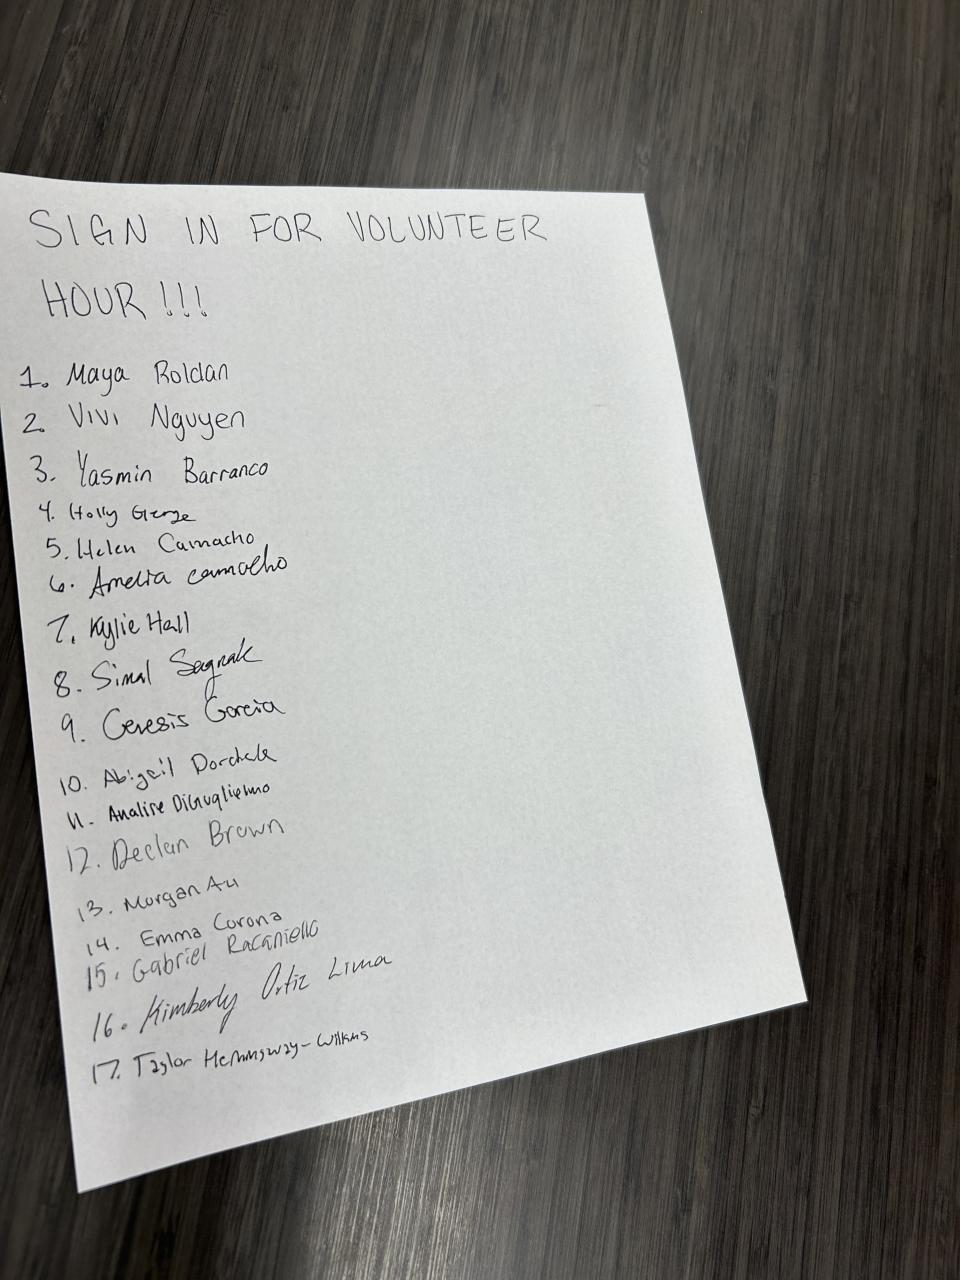 SIGN IN FOR VOLUNTEER
HOUR!!!
1. Maya Roldan
2. Vivi Nguyen
3. Yasmin Barranco
4. Holly George
5. Helen Camacho
6. Amelia camacho
7. Kylie Hall
8. Simal Sagnak
9. Genesis Garcia
10. Abigail
11. Analise DiGuglielmo
12. Declan Brown
13. Morgan Au
14. Emma Corona
15. Gabriel Racaniello
16. Kimberly Ortiz Lima
17. Taylor Hemingway-Wilkins